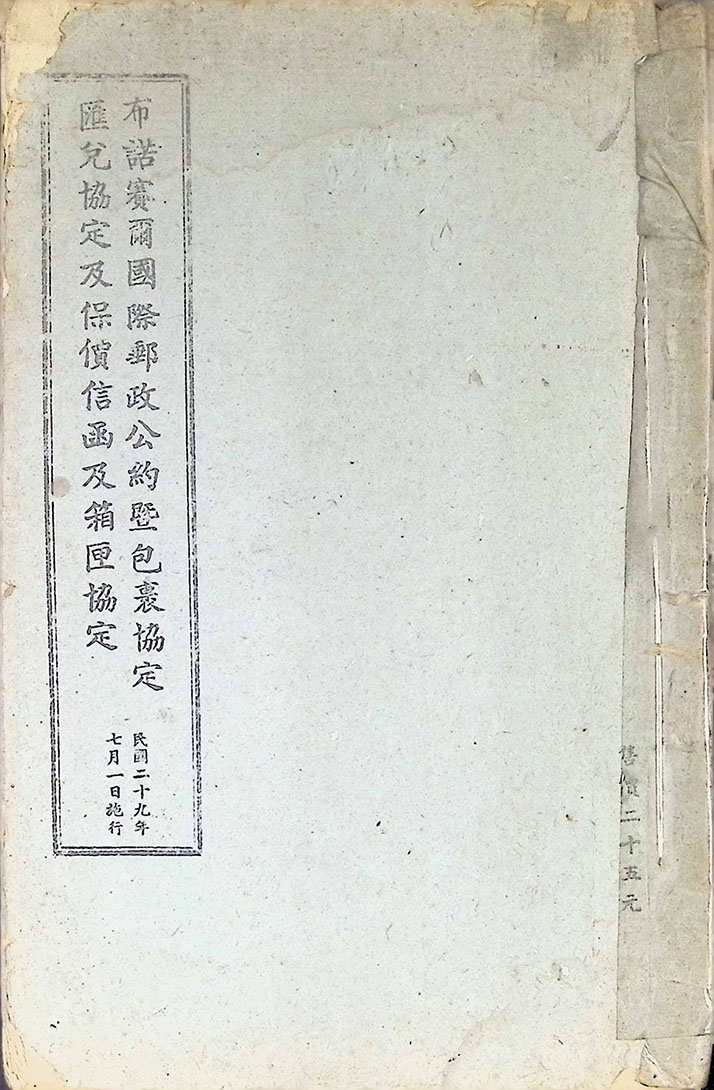 布諾賽爾國際郵政公約暨包裹協定
匯兌協定及保價信函及箱匣協定
民國二十九年
七月一日施行
售價二十五元